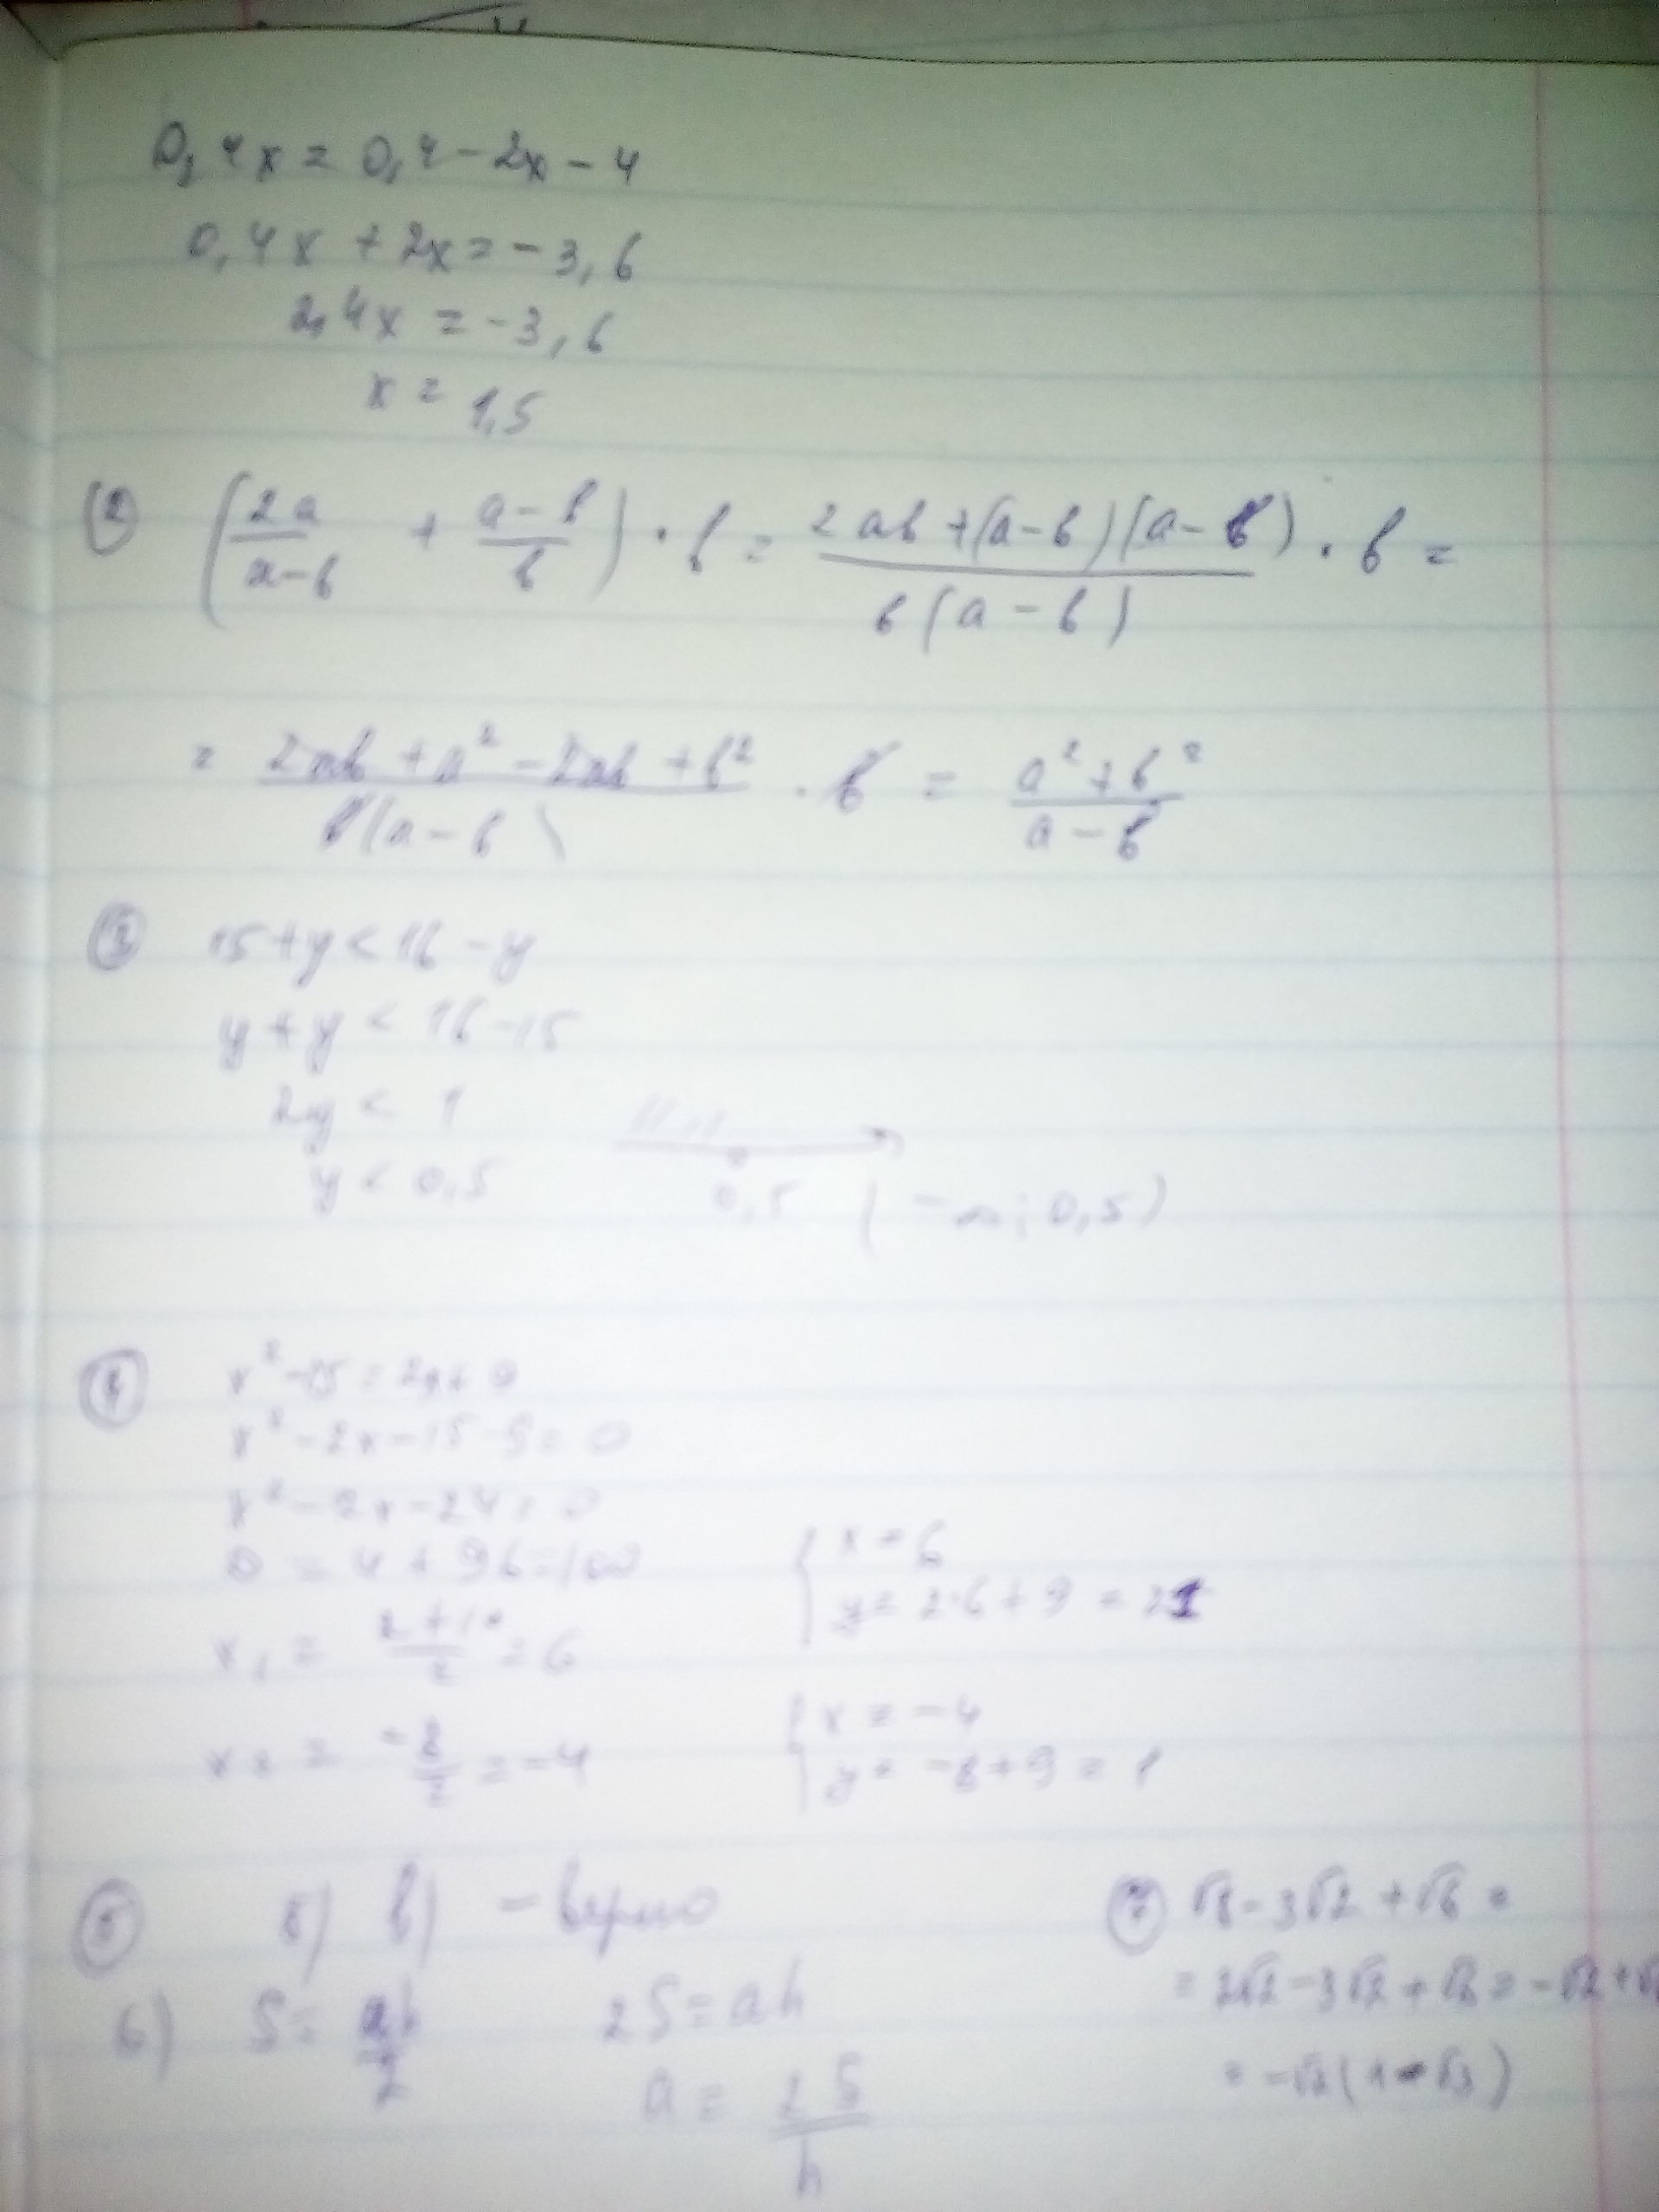 0,4x = 0,4 - 2x - 4
0,4x + 2x = - 3,6
2,4x = - 3,6
x = 1,5
② (2a/(a-b) + (a-b)/b) · b = (2ab + (a-b)(a-b))/(b(a-b)) · b =
= (2ab + a² - 2ab + b²)/(b(a-b)) · b = (a² + b²)/(a-b)
③ 15 + y < 16 - y
y + y < 16 - 15
2y < 1
y < 0,5
0,5 (-∞; 0,5)
④ x² - 15 = 2x + 9
x² - 2x - 15 - 9 = 0
x² - 2x - 24 = 0
D = 4 + 96 = 100
x₁ = (2 + 10)/2 = 6
{ x = 6
y = 2·6 + 9 = 21
x₂ = -8/2 = -4
{ x = -4
y = -8 + 9 = 1
⑤ б) в) - верно
6) S = ah/2
2S = ah
a = 2S/h
⑦ √8 - 3√2 + √6 =
= 2√2 - 3√2 + √6 = -√2 + √
= -√2 (1 - √3)